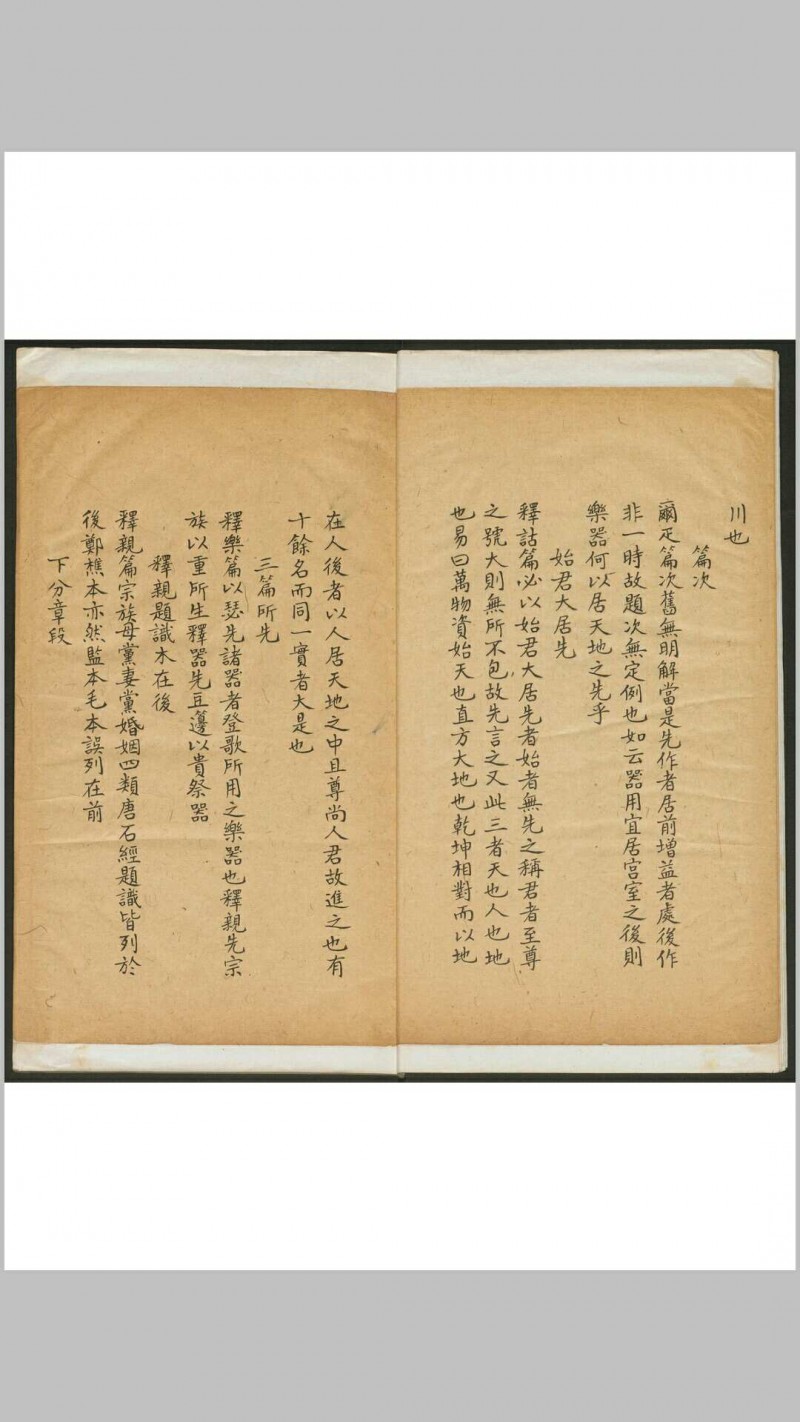 川也
篇次
爾疋篇次舊無明解當是先作者居前增益者處後作
非一時故題次無定例也如云器用宜居宫室之後則
樂器何以居天地之先乎
始君大居先
釋詁篇必以始君大居先者始者無先之稱君者至尊
之號大則無所不包故先言之又此三者天也人也地
也易曰萬物資始天也直方大地也乾坤相對而以地
在人後者以人居天地之中且尊尚人君故進之也有
十餘名而同一實者大是也
三篇所先
釋樂篇以瑟先諸器者登歌所用之樂器也釋親先宗
族以重所生釋器先豆籩以貴祭器
釋親題識木在後
釋親篇宗族母黨妻黨婚姻四類唐石經題識皆列於
後鄭樵本亦然監本毛本誤列在前
下分章段